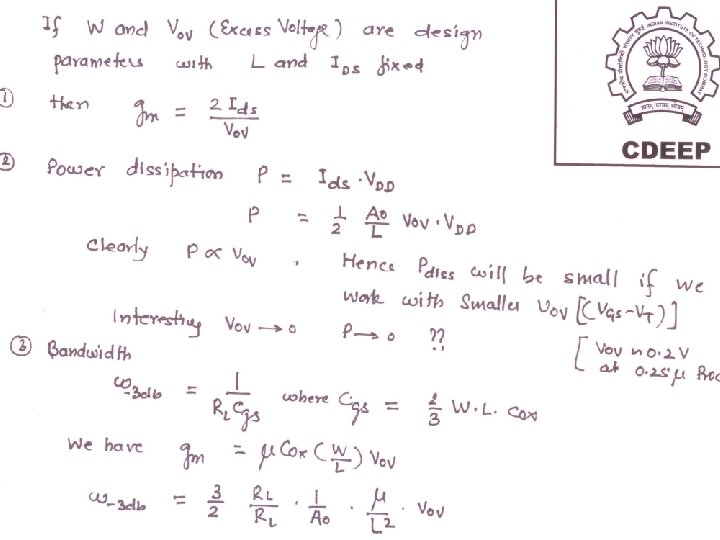 If W and Vov (Excess Voltage) are design
parameters with L and IDS fixed
① then gm = 2 Ids / Vov
② Power dissipation P = Ids · VDD
P = 1/2 A0/L Vov · VDD
Clearly P ∝ Vov . Hence Pdiss will be small if we
work with smaller Vov [(VGS-VT)]
Interesting Vov → 0 P → 0 ??
[Vov ~ 0.2V
at 0.25μ
③ Bandwidth
ω-3db = 1 / RL Cgs where Cgs = 2/3 W.L. Cox
We have gm = μ Cox (W/L) Vov
ω-3db = 3/2 RL/RL · 1/A0 · μ/L² · Vov
CDEEP